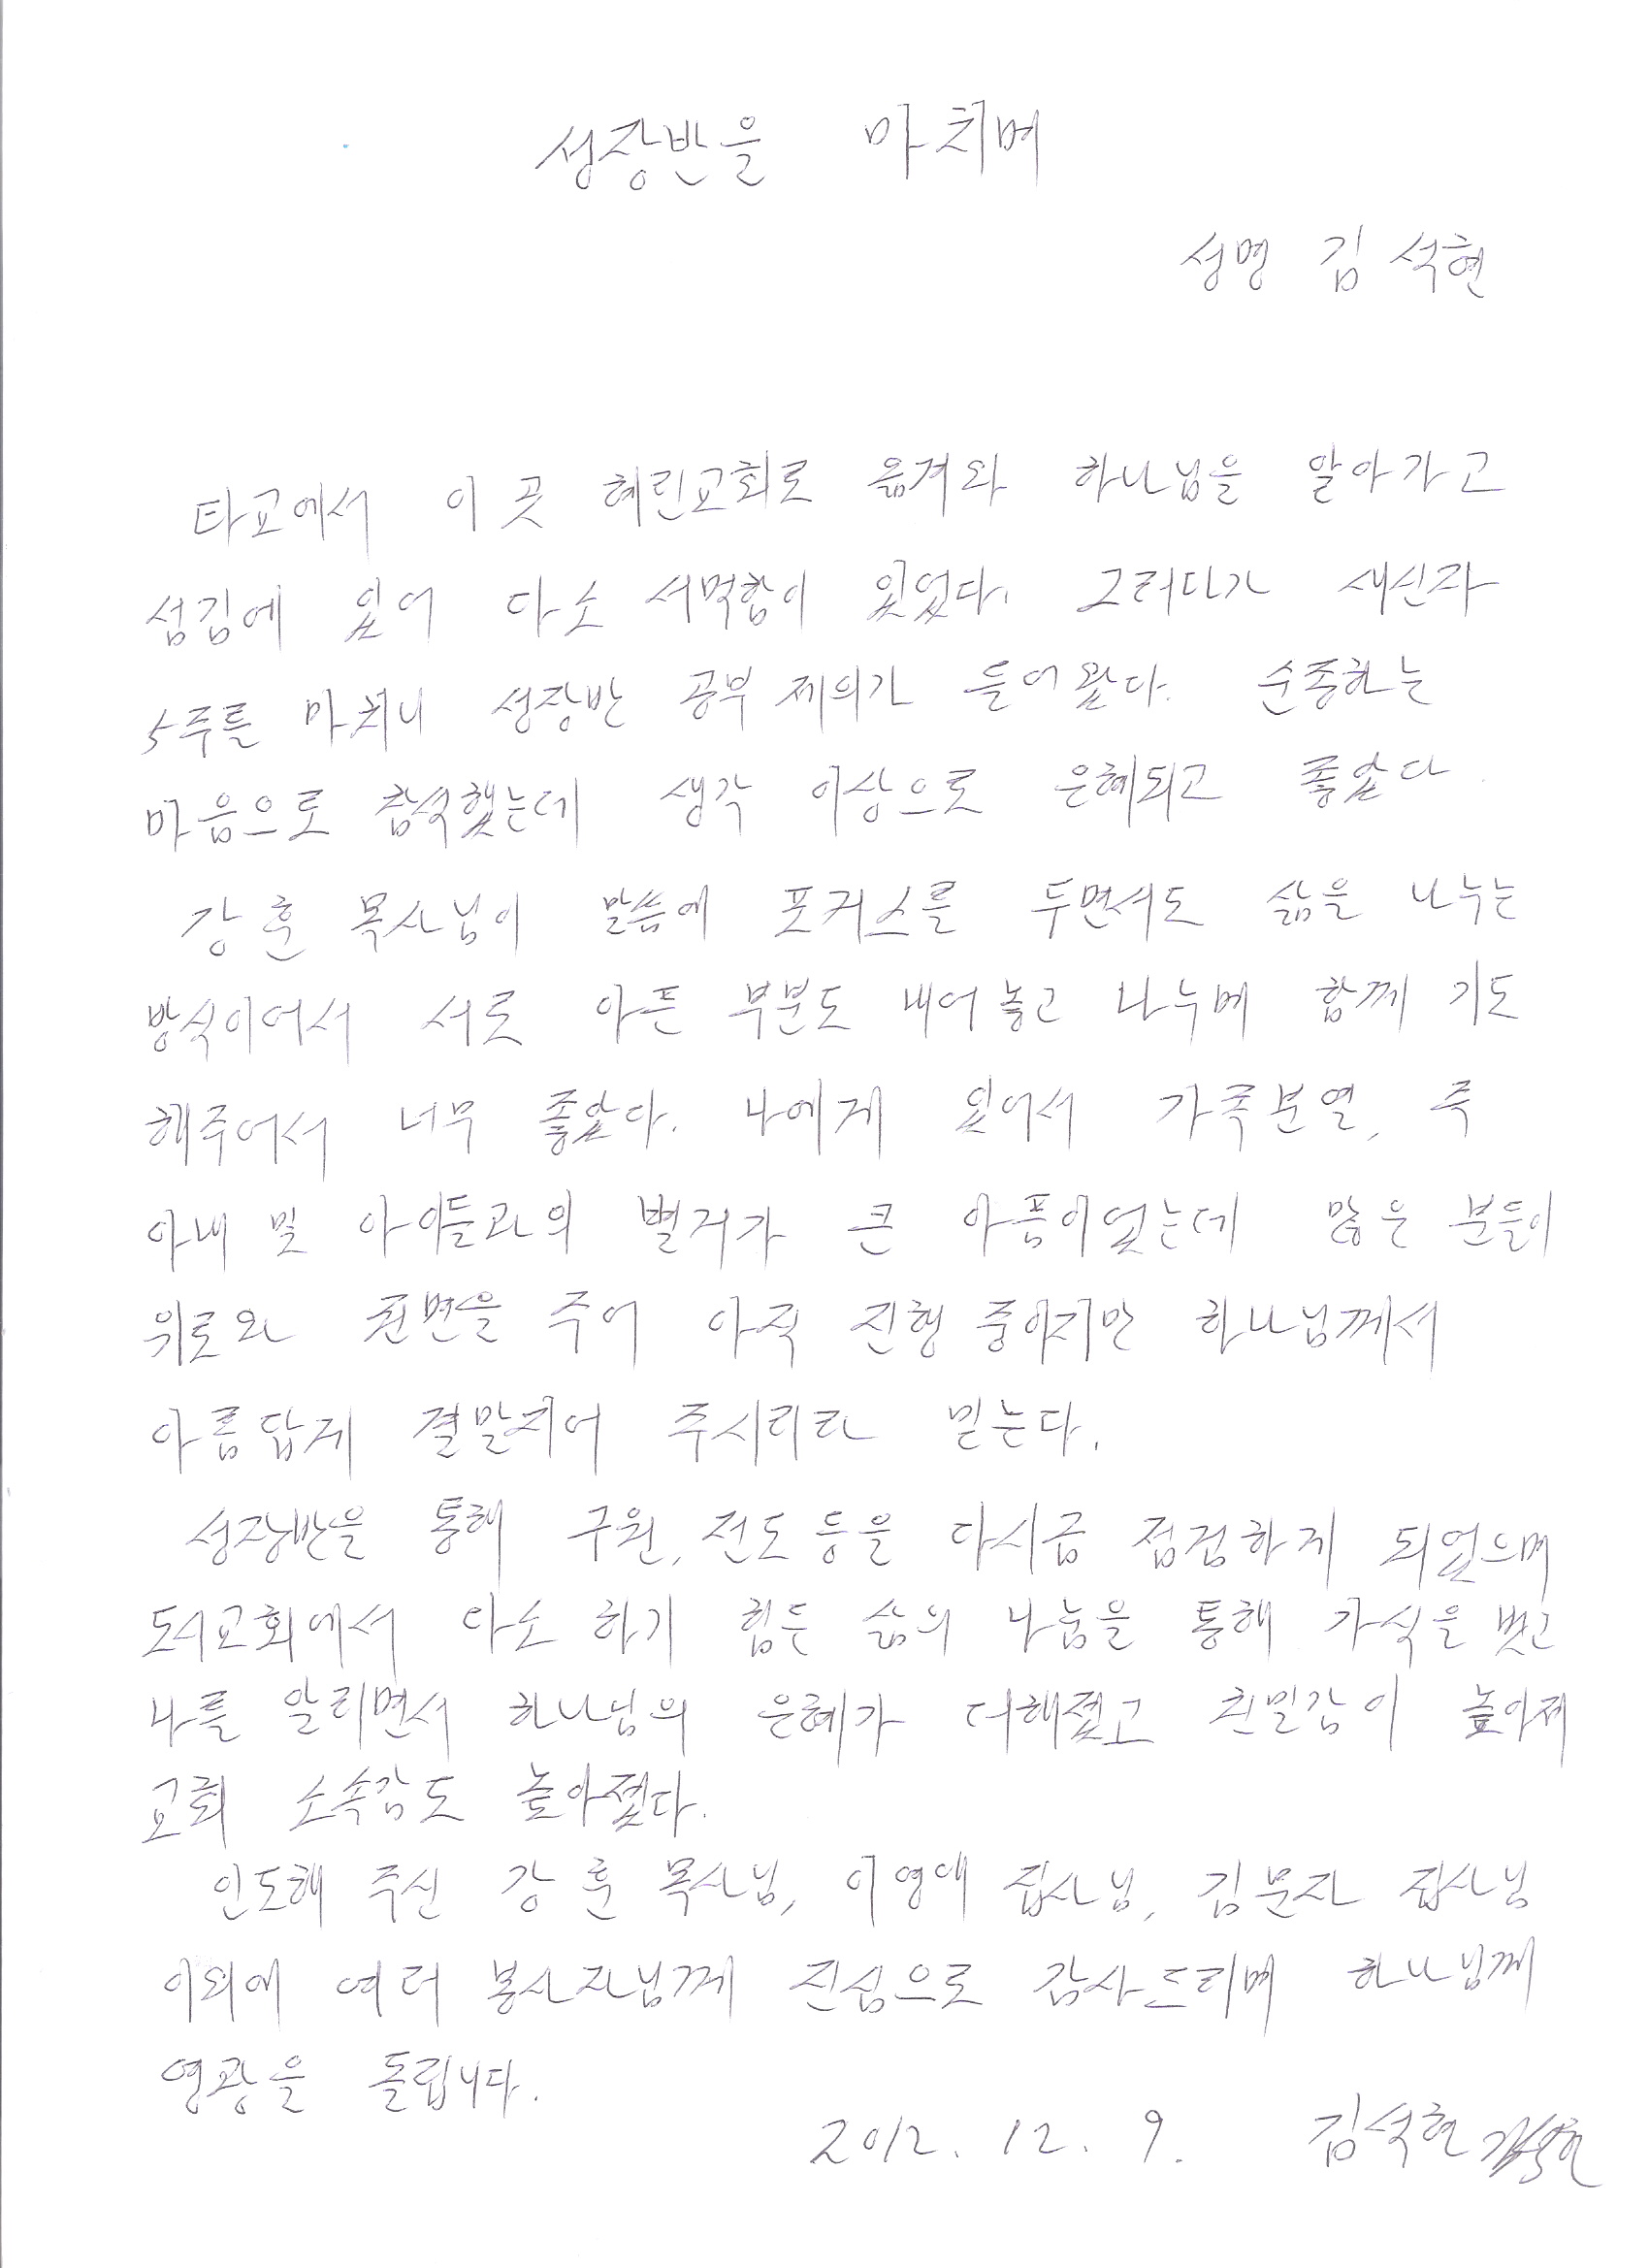 성장반을 마치며
성명 김석현
타교에서 이곳 혜린교회로 옮겨와 하나님을 알아가고
섬김에 있어 다소 서먹함이 있었다. 그러다가 새신자
5주를 마치니 성장반 공부 제의가 들어왔다. 순종하는
마음으로 참석했는데 생각 이상으로 은혜되고 좋았다
강훈 목사님이 말씀에 포커스를 두면서도 삶을 나누는
방식이어서 서로 아픈 부분도 내어놓고 나누며 함께 기도
해주어서 너무 좋았다. 나에게 있어서 가족분열, 즉
아내 및 아이들과의 별거가 큰 아픔이었는데 많은 분들이
위로와 권면을 주어 아직 진행 중이지만 하나님께서
아름답게 결말지어 주시리라 믿는다.
성장반을 통해 구원, 전도 등을 다시금 점검하게 되었으며
도시교회에서 다소 하기 힘든 삶의 나눔을 통해 가식을 벗고
나를 알리면서 하나님의 은혜가 더해졌고 친밀감이 높아져
교회 소속감도 높아졌다.
인도해 주신 강훈 목사님, 이영애 집사님, 김문자 집사님
이외에 여러 봉사자님께 진심으로 감사드리며 하나님께
영광을 돌립니다.
2012. 12. 9. 김석현